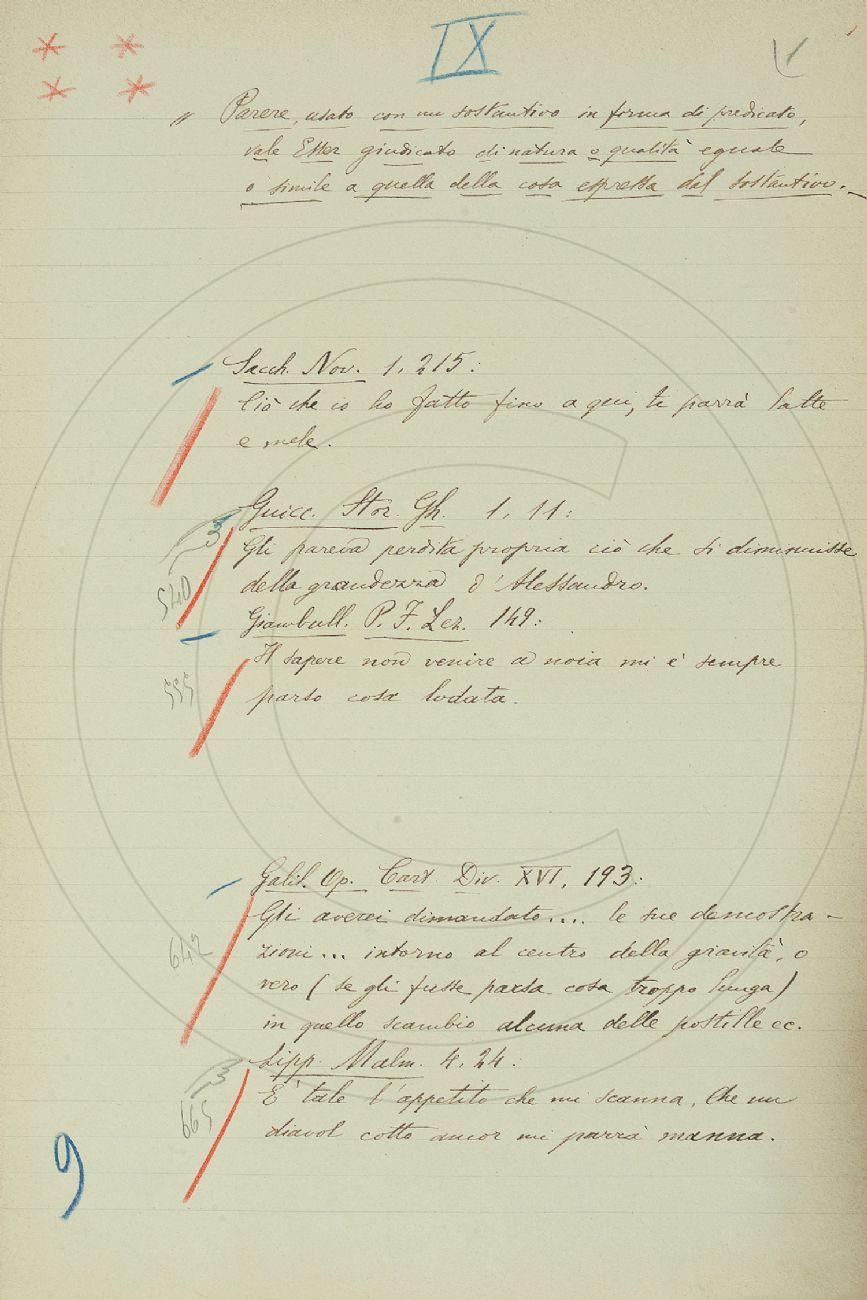 IX
" Parere, usato con un sostantivo in forma di predicato,
vale Esser giudicato di natura o qualità eguale
o simile a quella della cosa espressa dal sostantivo. —
Sacch. Nov. 1, 215:
Ciò che io ho fatto fino a qui, ti parrà latte
e mele.
Guicc. Stor. Gh. 1, 11:
Gli pareva perdita propria ciò che si diminuisse
540
della grandezza d'Alessandro.
Giambull. P. F. Lez. 149:
Il sapere non venire a noia mi è sempre
555
parso cosa lodata.
Galil. Op. Cart. Div. XVI, 193:
Gli averei dimandato.... le sue demostra-
642
zioni... intorno al centro della gravità, o
vero (se gli fusse parsa cosa troppo lunga)
in quello scambio alcuna delle postille ec.
Lipp. Malm. 4, 24:
665
E' tale l'appetito che mi scanna, Che un
diavol cotto ancor mi parrà manna.
9